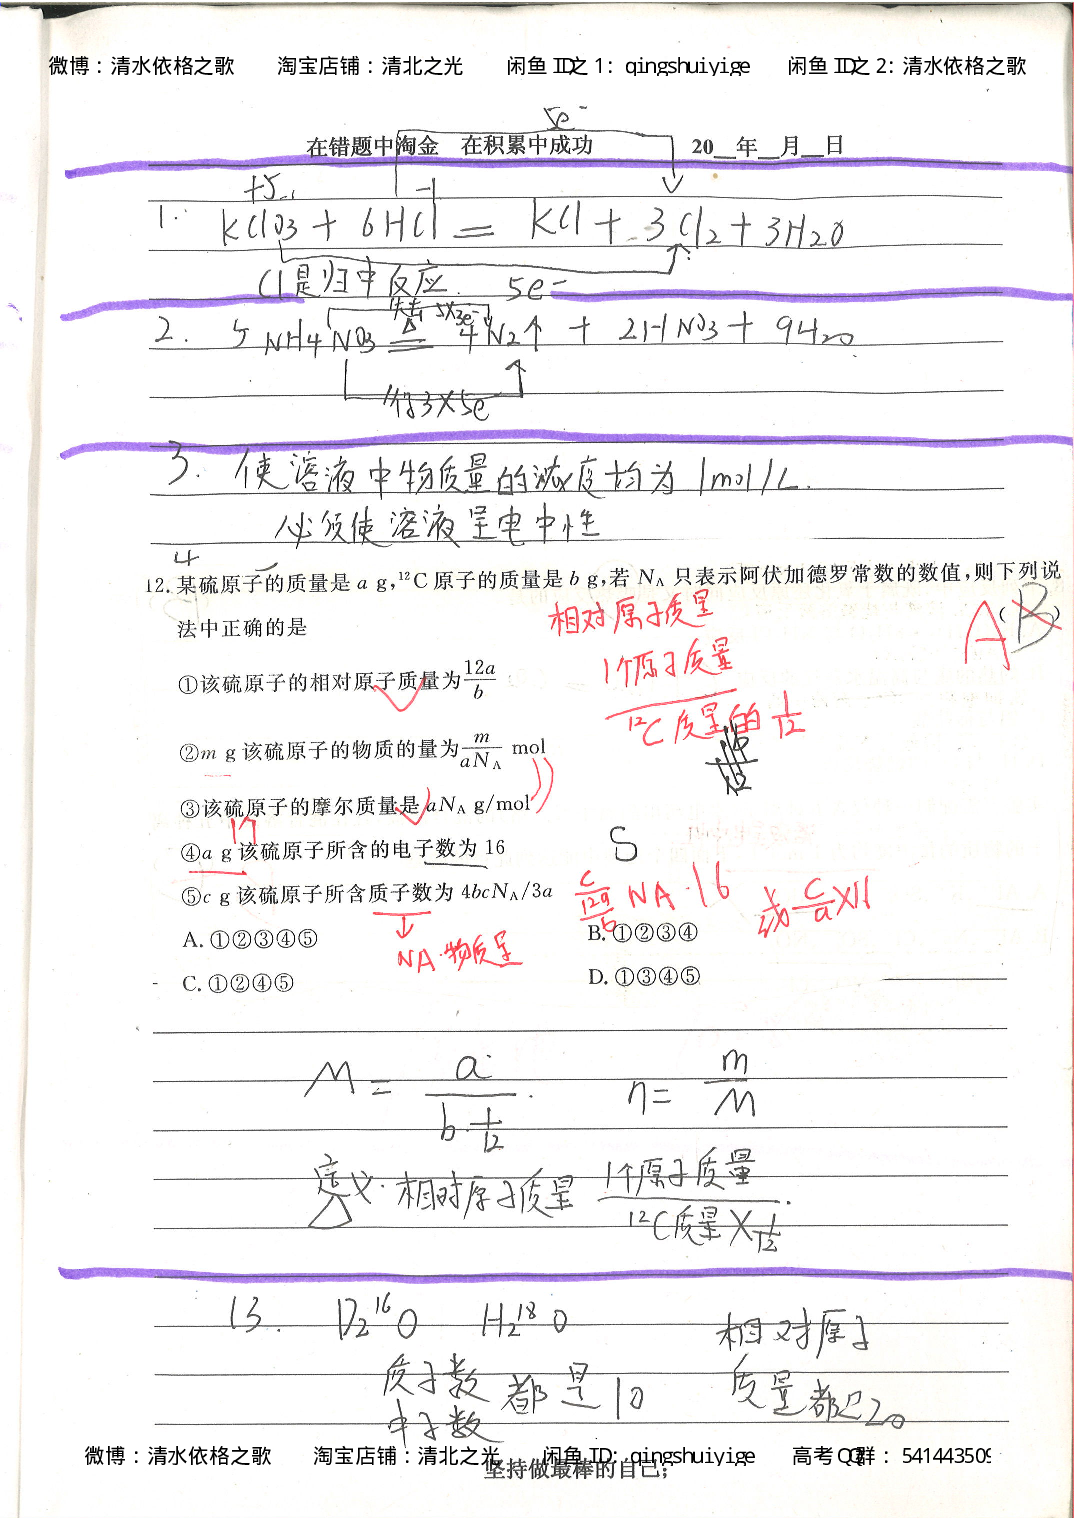 微博：清水依格之歌 淘宝店铺：清北之光 闲鱼 ID之 1：qingshuiyige 闲鱼 ID之 2：清水依格之歌
5e⁻
在错题中淘金 在积累中成功 20__年__月__日
+5 -1 -1
1. KClO3 + 6HCl = KCl + 3Cl2 + 3H2O
Cl是归中反应. 5e⁻
失去 5X3e⁻
2. 5NH4NO3 =△= 4N2↑ + 2HNO3 + 9H2O
得3X5e⁻
3. 使溶液中物质量的浓度均为 1mol/L.
必须使溶液呈电中性
4
12. 某硫原子的质量是 a g,¹²C 原子的质量是 b g,若 NA 只表示阿伏加德罗常数的数值,则下列说
法中正确的是 ( B )
A
相对原子质量
①该硫原子的相对原子质量为12a/b
1个原子质量
¹²C 质量的 1/12
②m g 该硫原子的物质的量为m/aNA mol
③该硫原子的摩尔质量是 aNA g/mol
17
④a g 该硫原子所含的电子数为 16
S
⑤c g 该硫原子所含质子数为 4bcNA/3a
c/(12a/b) NA·16
或 c/a X11
NA·物质量
A. ①②③④⑤ B. ①②③④
C. ①②④⑤ D. ①③④⑤
M = a/(b·1/12) n = m/M
定义·相对原子质量 1个原子质量/¹²C质量X1/12
13. D2¹⁶O H2¹⁸O 相对原子
质子数 都是10 质量都是20
中子数
微博：清水依格之歌 淘宝店铺：清北之光 闲鱼 ID：qingshuiyige 高考 QQ群：541443509
坚持做最棒的自己；